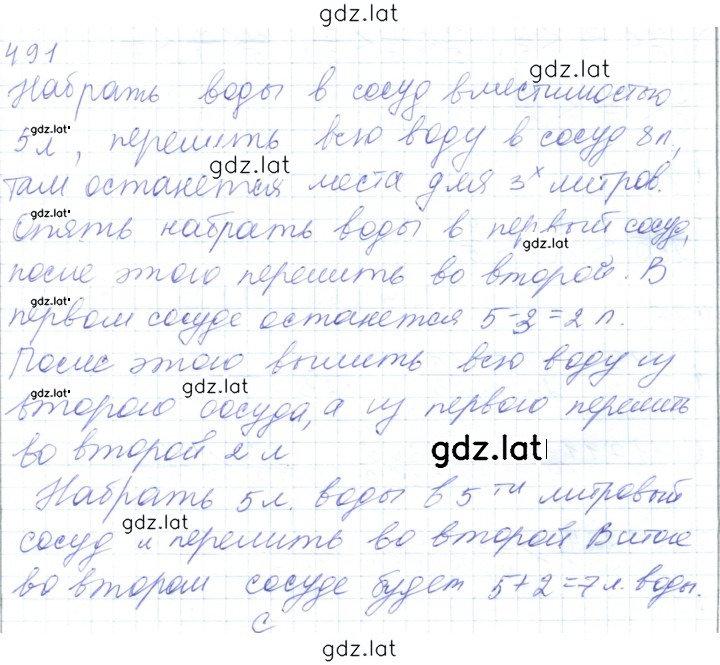 gdz.lat
491
gdz.lat
Набрать воды в сосуд вместимостью
gdz.lat
5л, перелить всю воду в сосуд 8л,
gdz.lat
там останется места для 3х литров.
gdz.lat
Опять набрать воды в первый сосуд,
gdz.lat
после этого перелить во второй. В
gdz.lat
первом сосуде останется 5-3=2 л.
После этого вылить всю воду из
gdz.lat gdz.lat
второго сосуда, а из первого перелить
во второй 2 л
gdz.lat
Набрать 5л. воды в 5ти литровый
gdz.lat
сосуд и перелить во второй В итоге
во втором сосуде будет 5+2=7 л. воды.
с
gdz.lat